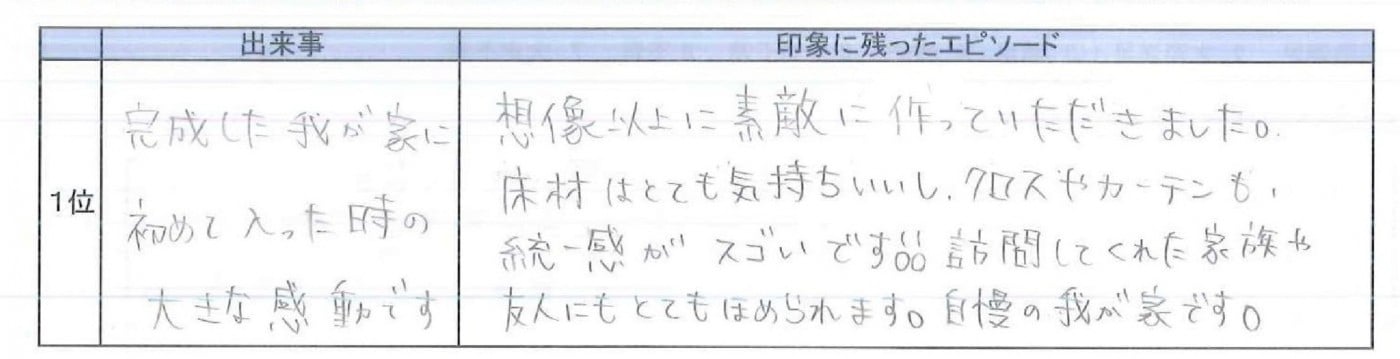 出来事
印象に残ったエピソード
1位
完成した我が家に
初めて入った時の
大きな感動です
想像以上に素敵に作っていただきました。
床材はとても気持ちいいし、クロスやカーテンも、
統一感がスゴいです!!訪問してくれた家族や
友人にもとてもほめられます。自慢の我が家です。